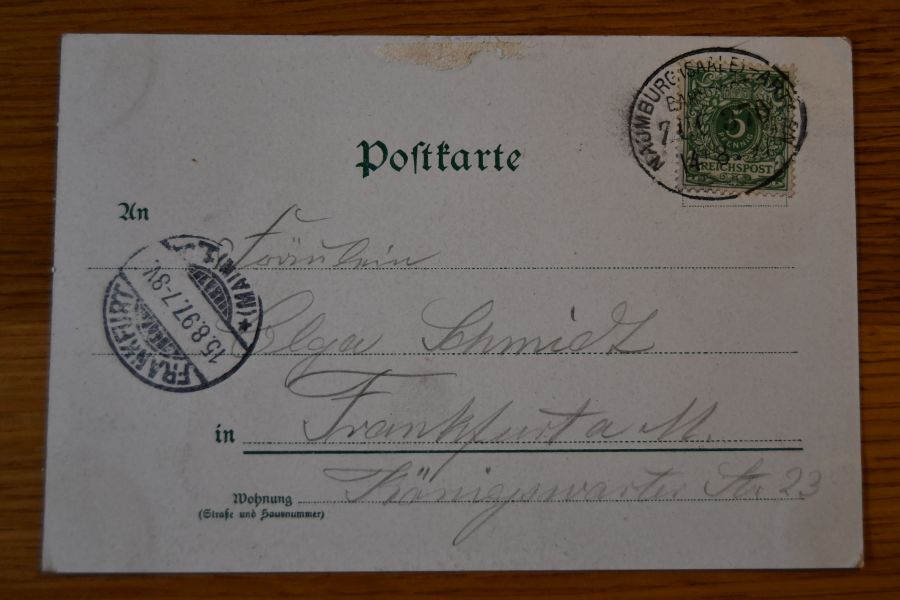 Postkarte
NAUMBURG (SAALE)-
5
REICHSPOST
14 8
An
Fräulein
Olga Schmidt
FRANKFURT
*(MAIN) 1.
15.8.97.7-8V.
in Frankfurt a M.
Wohnung Königswarter Str 23
(Straße und Hausnummer)